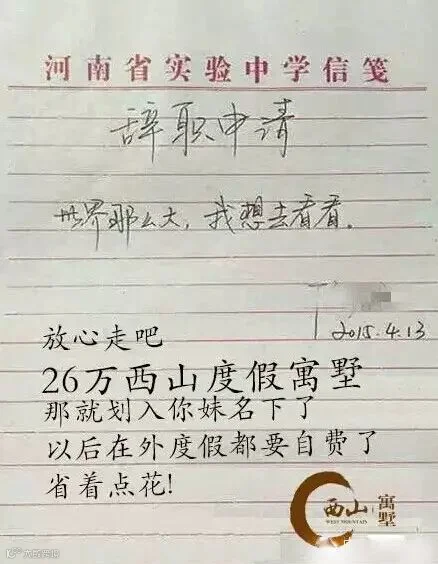 河南省实验中学信笺
辞职申请
世界那么大，我想去看看.
2015.4.13
放心走吧
26万西山度假寓墅
那就划入你妹名下了
以后在外度假都要自费了
省着点花!
西山
WEST MOUNTAIN
寓墅